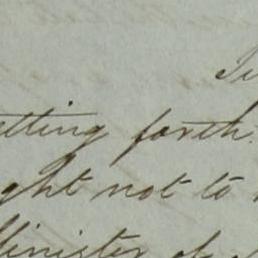 etting forth
ght not to
Minister of